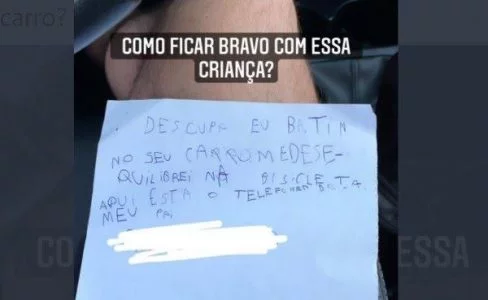 carro?
COMO FICAR BRAVO COM ESSA
CRIANÇA?
DESCUPA EU BATIN
NO SEU CARRO MEDESE-
QUILIBREI NA BISICLETA
AQUI ESTA O TELEFONE DO
MEU PAI
CO
ESSA